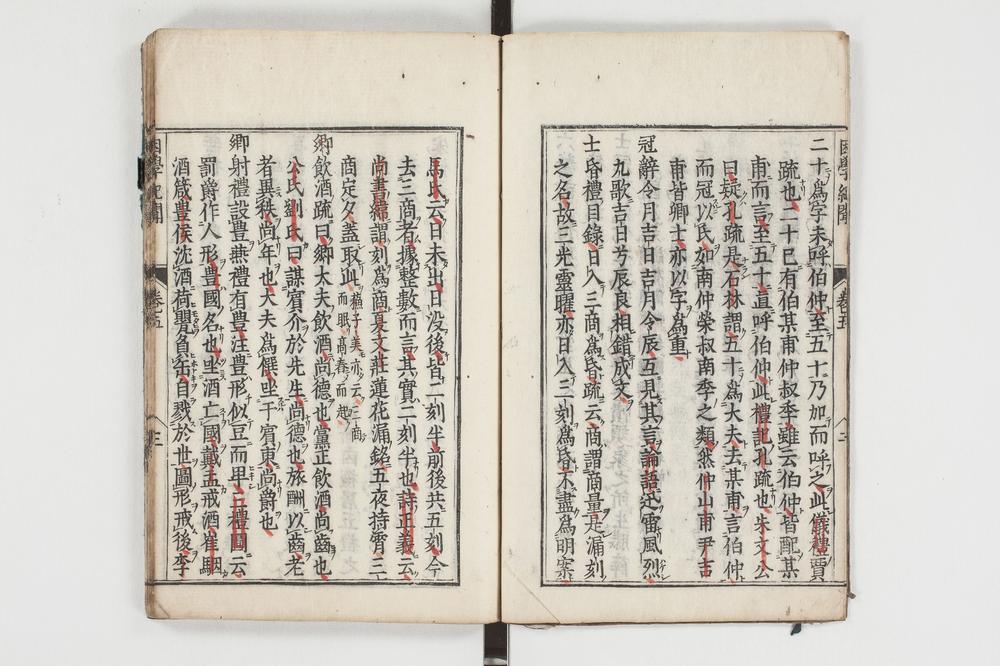 困學紀聞
卷五
二
二十爲字未呼伯仲至五十乃加而呼之此儀禮賈
疏也二十已有伯某甫仲叔季雖云伯仲皆配某
甫而言至五十直呼伯仲此禮記孔疏也朱文公
曰疑孔疏是石林謂五十爲大夫去某甫言伯仲
而冠以氏如南仲榮叔南季之類然仲山甫尹吉
甫皆卿士亦以字爲重
冠辭令月吉日吉月令辰互見其言論語迅雷風烈
九歌吉日兮辰良相錯成文
士昏禮目錄日入三商爲昏疏云商謂商量是漏刻
之名故三光靈曜亦日入三刻爲昏不盡爲明案
馬氏云日未出日没後皆二刻半前後共五刻今
去三商者據整數而言其實二刻半也詩正義云
尚書緯謂刻爲商夏文莊蓮花漏銘五夜持宵三
商定夕蓋取此蘇子美亦云三商而眠高舂而起
鄉飲酒疏曰鄉大夫飲酒尚德也黨正飲酒尚齒也
公氏劉氏曰謀賓介於先生尚德也旅酬以齒老
者異秩尚年也大夫爲僎坐于賓東尚爵也
鄉射禮設豐燕禮有豐注豐形似豆而卑三禮圖云
罰爵作人形豐國名也坐酒亡國戴盂戒酒崔駰
酒箴豐侯沈酒荷罌負缶自戮於世圖形戒後李
困學紀聞
卷五
三